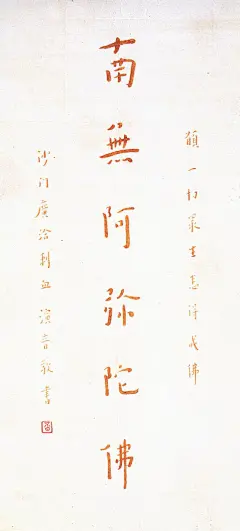 願一切眾生悉得成佛
南無阿弥陀佛
沙门廣洽刺血演音敬書